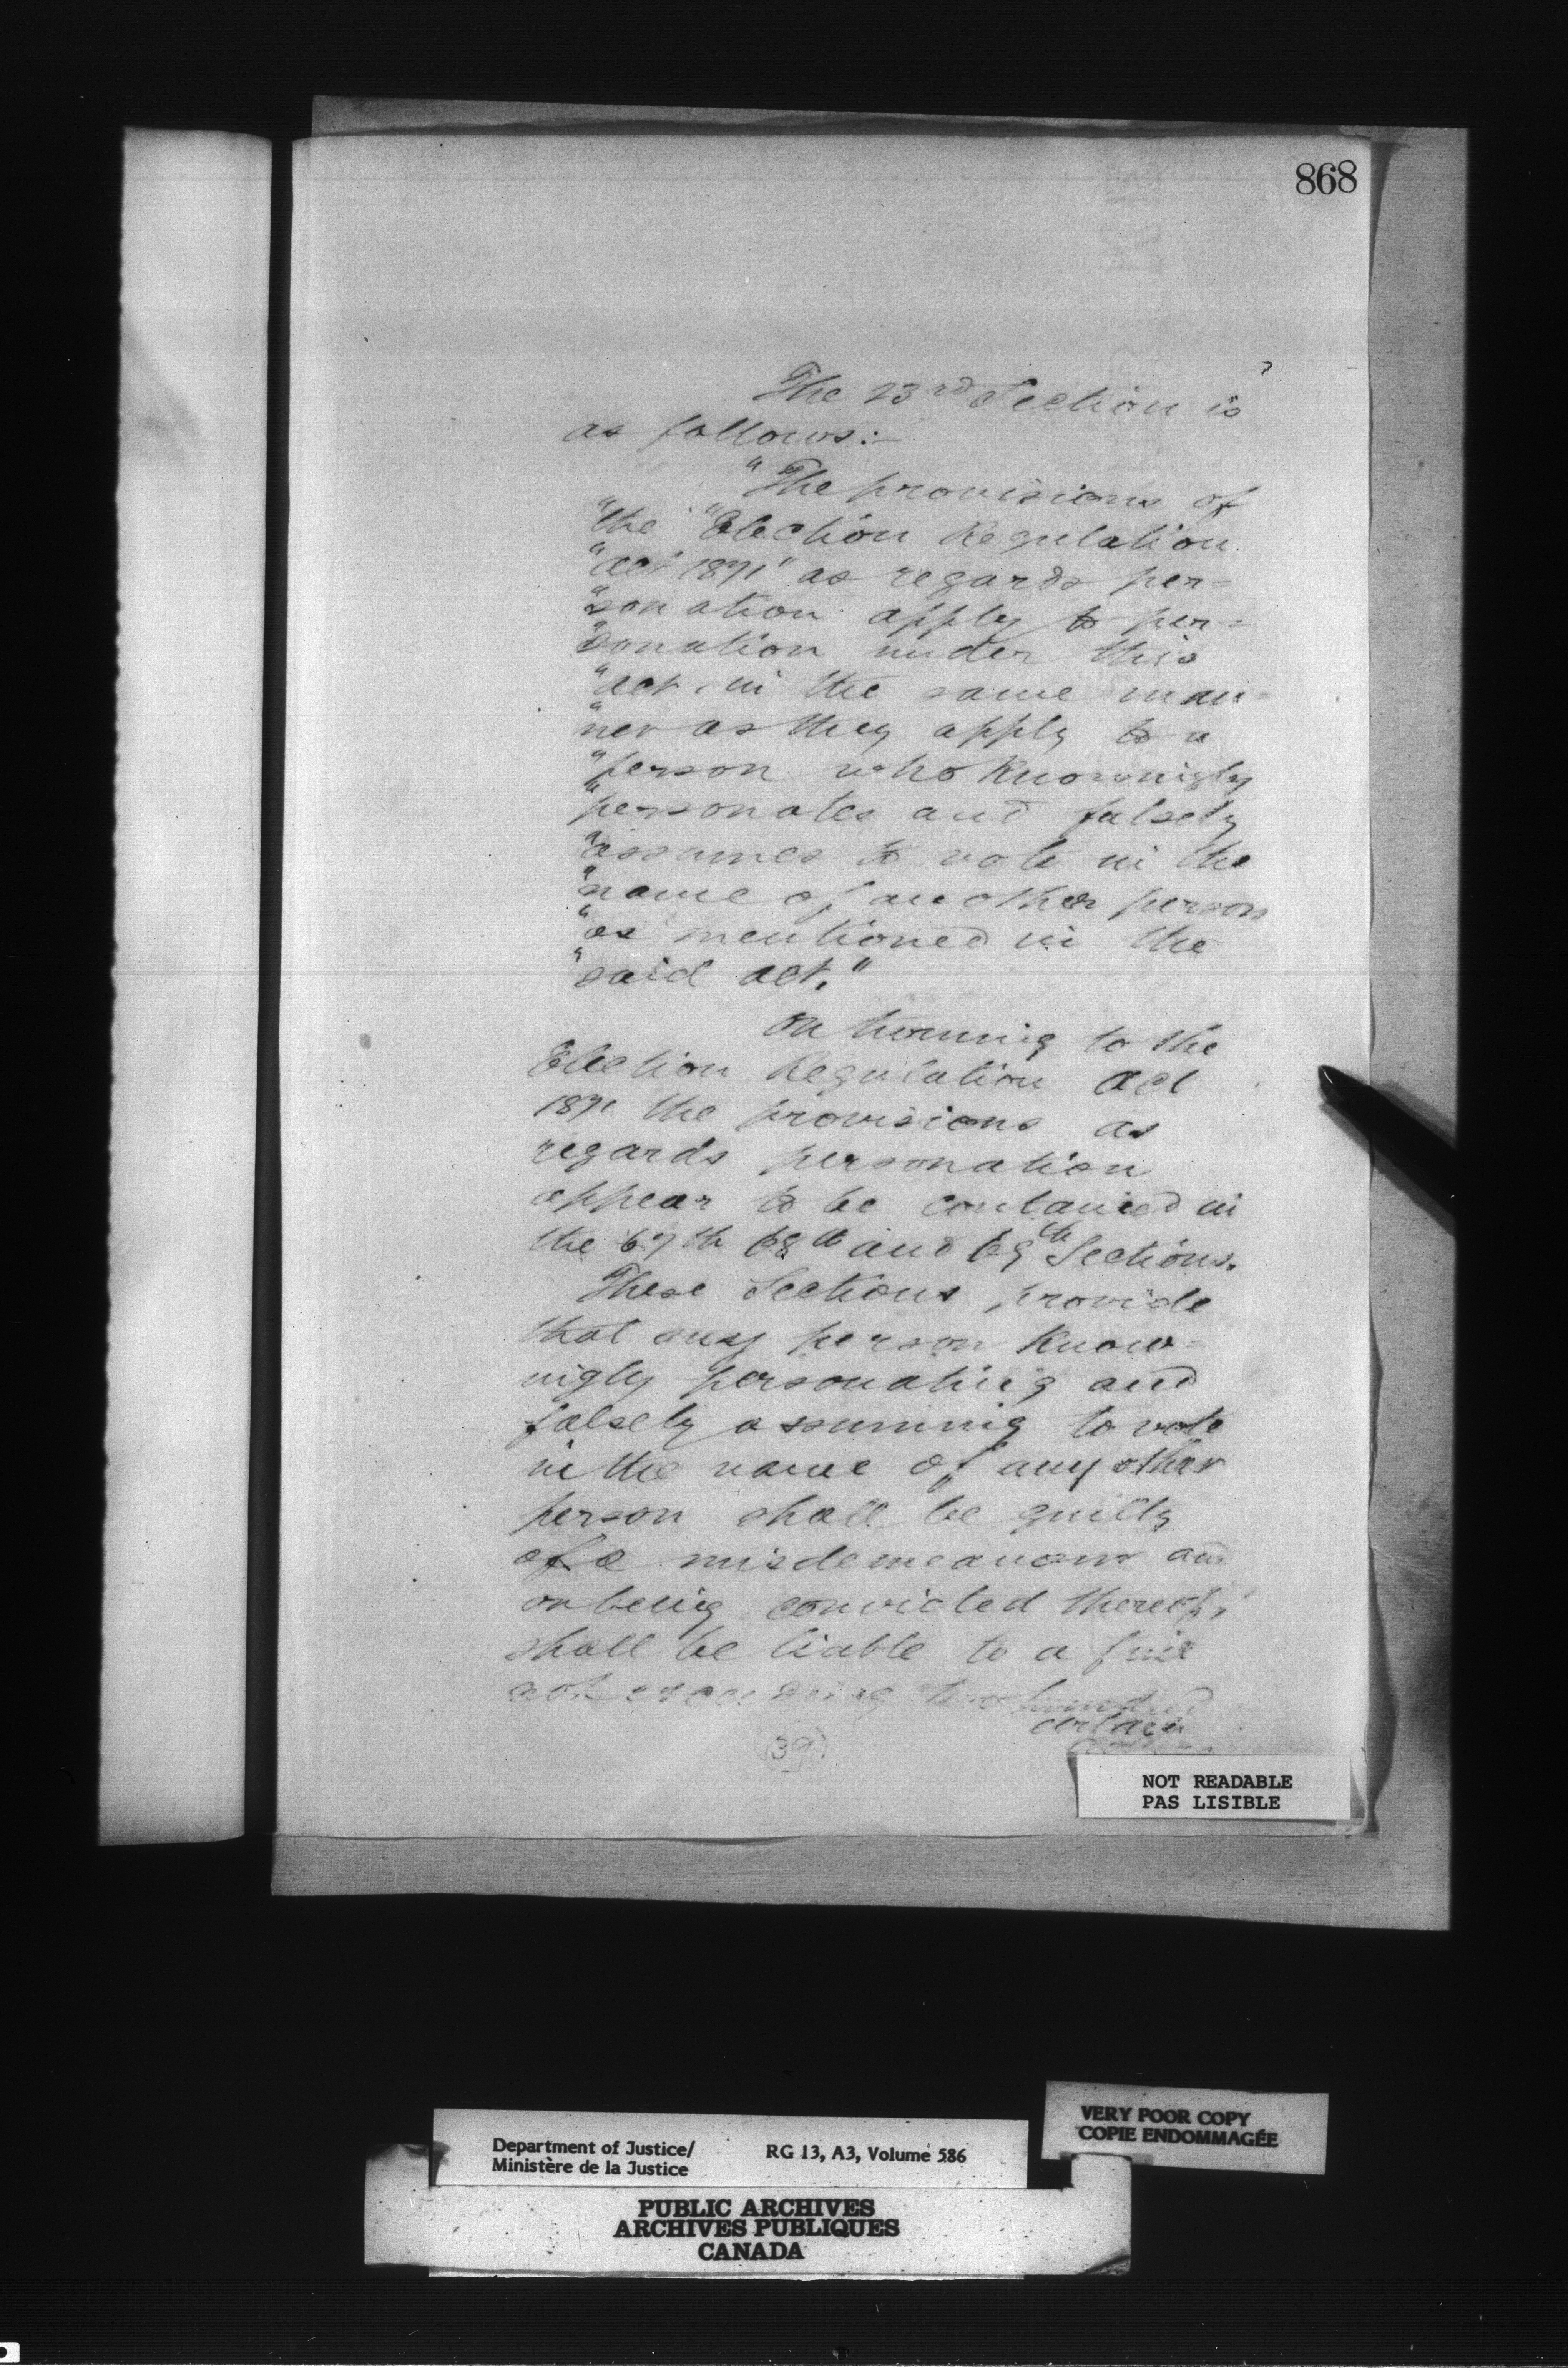 868
7
The 23rd Section is
as follows:-
"The provisions of
"the "Election Regulation
"act 1871" as regards per=
"sonation apply to per=
"sonation under this
"act in the same man=
"ner as they apply to a
"person who knowingly
"personates and falsely
"assumes to vote in the
"name of another person
"as mentioned in the
"said act."
On turning to the
Election Regulation act
1871 the provisions as
regards personation
appear to be contained in
the 67th 68th and 69th Sections.
These Sections provide
that any person know=
ingly personating and
falsely assuming to vote
in the name of any other
person shall be guilty
of a misdemeanour and
on being convicted thereof,
shall be liable to a fine
not exceeding two hundred
(39)
NOT READABLE
PAS LISIBLE
VERY POOR COPY
COPIE ENDOMMAGÉE
Department of Justice/ RG 13, A3, Volume 586
Ministère de la Justice
PUBLIC ARCHIVES
ARCHIVES PUBLIQUES
CANADA